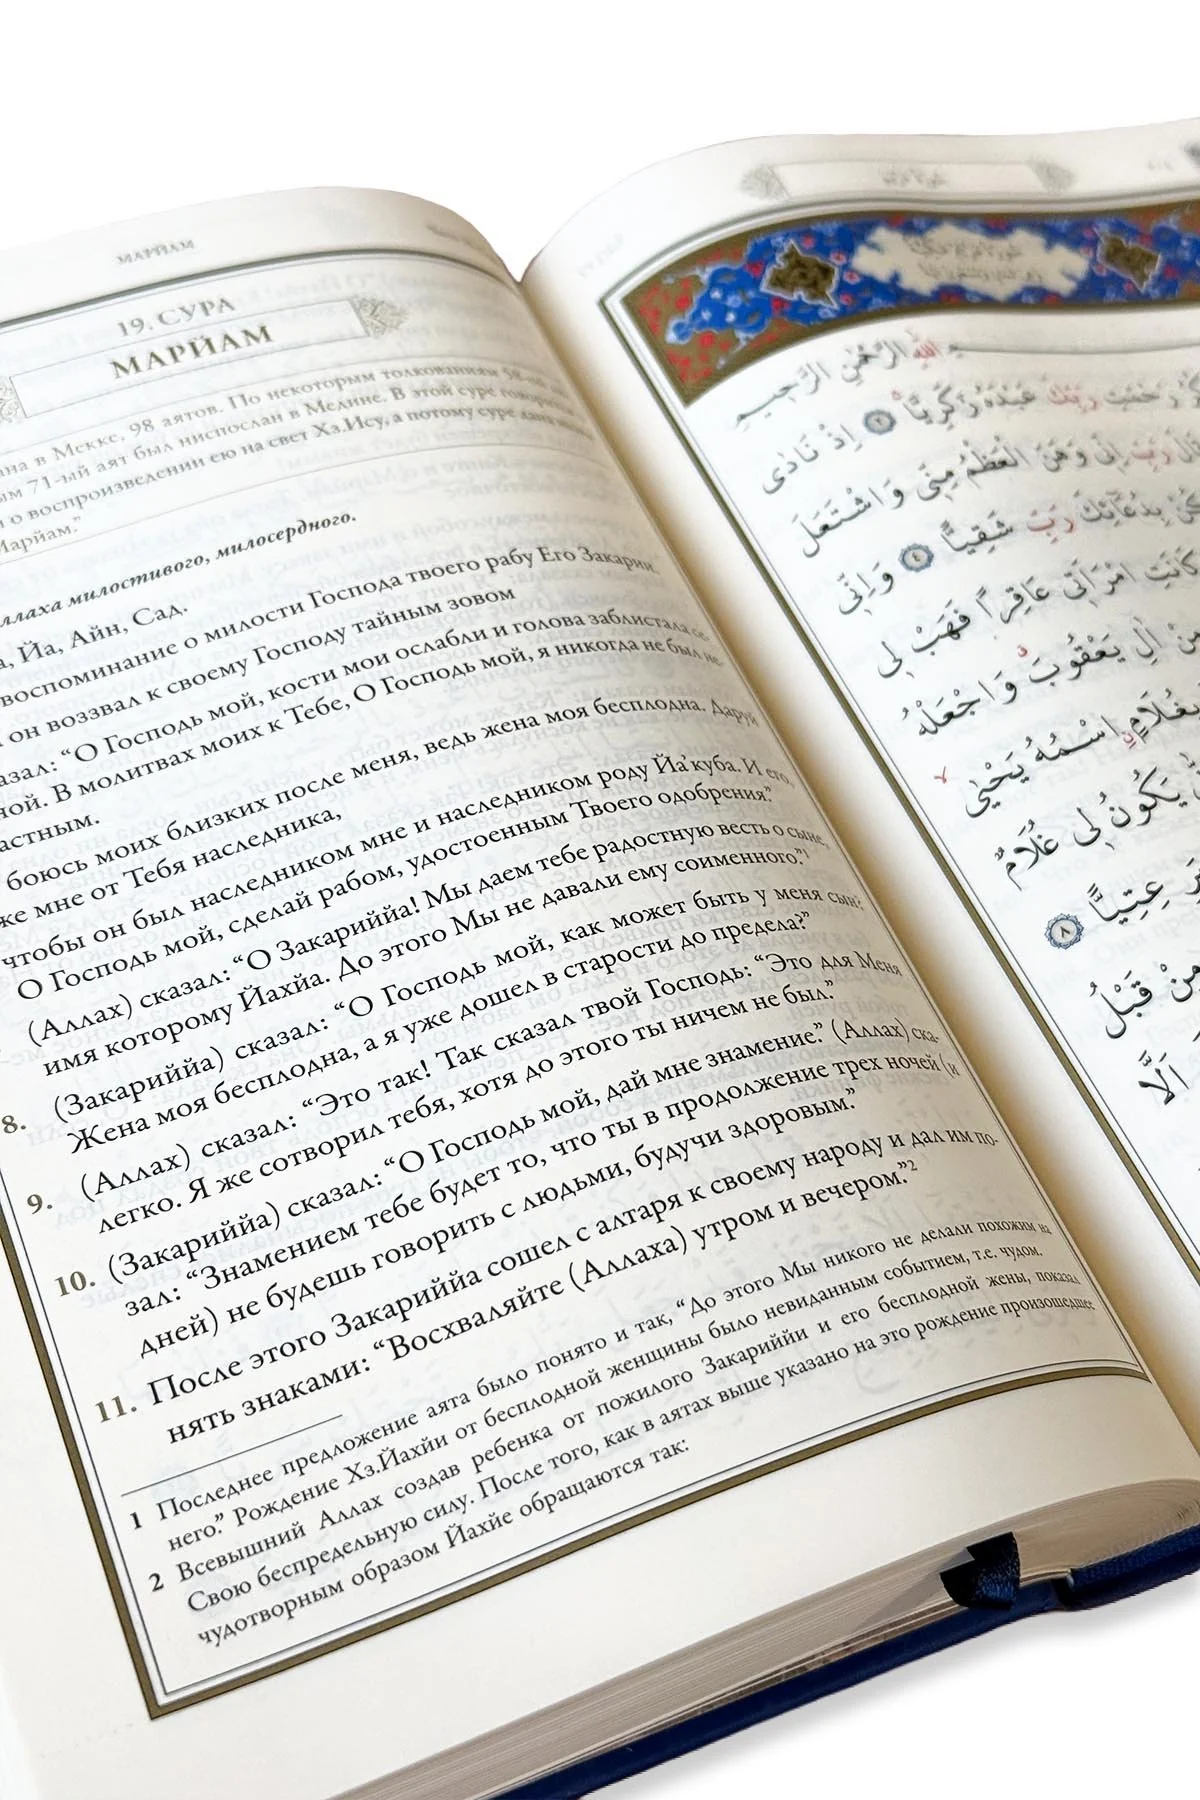 МАРЙАМ
19. СУРА
МАРЙАМ
Мекке, 98 аятов. По некоторым толкованиям
71-ый аят был ниспослан в Медине. В этой суре говорится
о воспроизведении ею на свет Хз.Ису, а потому суре дано
милостивого, милосердного.
Йа, Айн, Сад.
воспоминание о милости Господа твоего рабу Его Закарии.
он воззвал к своему Господу тайным зовом
“О Господь мой, кости мои ослабли и голова заблистала се-
В молитвах моих к Тебе, О Господь мой, я никогда не был не-
боюсь моих близких после меня, ведь жена моя бесплодна. Даруй
же мне от Тебя наследника,
чтобы он был наследником мне и наследником роду Йа’куба. И его,
О Господь мой, сделай рабом, удостоенным Твоего одобрения”.
(Аллах) сказал: “О Закариййа! Мы даем тебе радостную весть о сыне,
имя которому Йахйа. До этого Мы не давали ему соименного.”1
8. (Закариййа) сказал: “О Господь мой, как может быть у меня сын?
Жена моя бесплодна, а я уже дошел в старости до предела?”
9. (Аллах) сказал: “Это так! Так сказал твой Господь: “Это для Меня
легко. Я же сотворил тебя, хотя до этого ты ничем не был”.
10. (Закариййа) сказал: “О Господь мой, дай мне знамение.” (Аллах) ска-
зал: “Знамением тебе будет то, что ты в продолжение трех ночей (и
дней) не будешь говорить с людьми, будучи здоровым.”
11. После этого Закариййа сошел с алтаря к своему народу и дал им по-
нять знаками: “Восхваляйте (Аллаха) утром и вечером.”2
1 Последнее предложение аята было понято и так, “До этого Мы никого не делали похожим на
него.” Рождение Хз.Йахйи от бесплодной женщины было невиданным событием, т.е. чудом.
2 Всевышний Аллах создав ребенка от пожилого Закариййи и его бесплодной жены, показал
Свою беспредельную силу. После того, как в аятах выше указано на это рождение произошедшее
чудотворным образом Йахйе обращаются так:
اللّٰهِ الرَّحْمٰنِ الرَّحِيمِ
رَبِّكَ عَبْدَهُ زَكَرِيَّا ٢ اِذْ نَادٰى
رَبِّ اِنّٖى وَهَنَ الْعَظْمُ مِنّٖى وَاشْتَعَلَ
بِدُعَٓائِكَ رَبِّ شَقِيًّا ٤ وَاِنّٖى
كَانَتِ امْرَاَتٖى عَاقِرًا فَهَبْ لٖى
مِنْ اٰلِ يَعْقُوبَ وَاجْعَلْهُ
بِغُلَامٍ اسْمُهُ يَحْيٰى
يَكُونُ لٖى غُلَامٌ
عِتِيًّا ٨
مِنْ قَبْلُ
اَلَّا